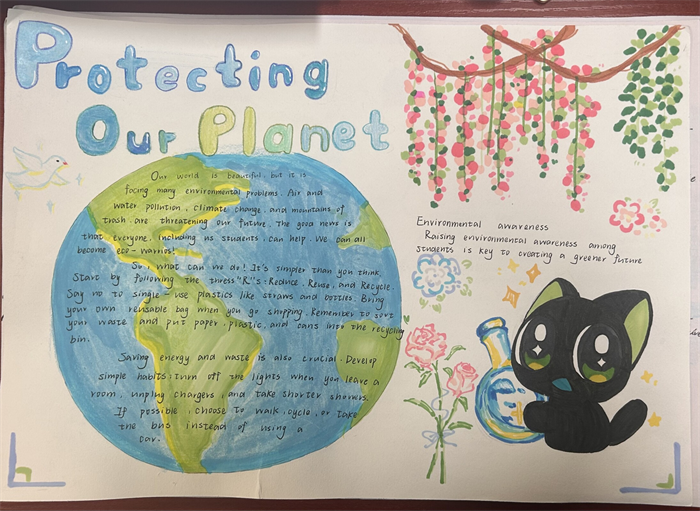 Protecting
Our Planet
Our world is beautiful, but it is
facing many environmental problems. Air and
water pollution, climate change, and mountains of
trash are threatening our future. The good news is
that everyone, including us students, can help. We can all
become eco-warrios!
So, what can we do? It's simpler than you think.
Start by following the thress "R's": Reduce, Reuse, and Recycle.
Say no to single-use plastics like straws and bottles. Bring
your own reusable bag when you go shopping. Remember to sort
your waste and put paper, plastic, and cans into the recycling
bin.
Saving energy and waste is also crucial. Develop
simple habits: turn off the lights when you leave a
room, unplug chargers, and take shorter showers.
If possible, choose to walk, cycle, or take
the bus instead of using a
car.
Environmental awareness
Raising environmental awareness among
students is key to creating a greener future